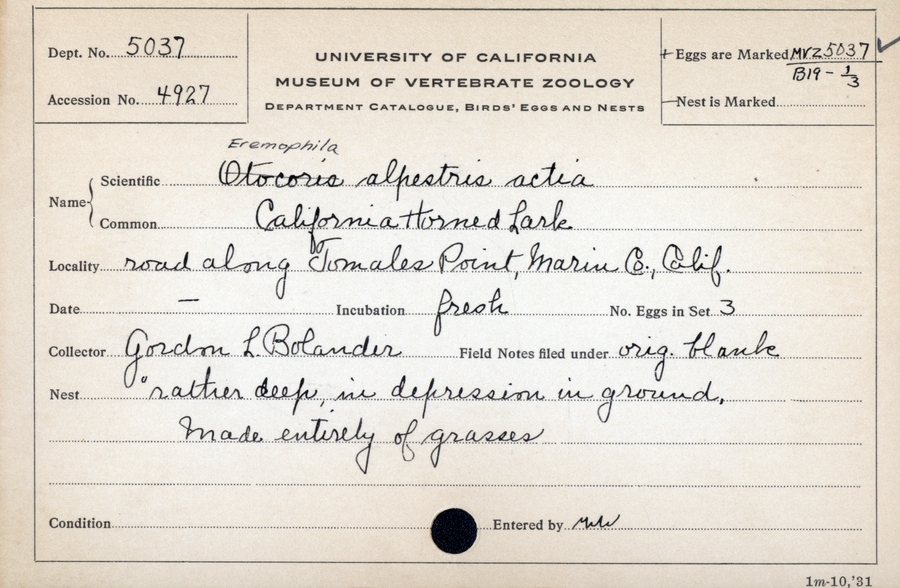 Dept. No. 5037
Accession No. 4927
UNIVERSITY OF CALIFORNIA
MUSEUM OF VERTEBRATE ZOOLOGY
DEPARTMENT CATALOGUE, BIRDS' EGGS AND NESTS
+ Eggs are Marked MVZ 5037 ✓
B19 - 1/3
Nest is Marked
Eremophila
Name { Scientific Otocoris alpestris actia
Common California Horned Lark
Locality road along to Tomales Point, Marin Co., Calif.
Date — Incubation fresh No. Eggs in Set 3
Collector Gordon L Bolander Field Notes filed under orig. blank
Nest "rather deep, in depression in ground,
Made entirely of grasses
Condition Entered by
1m-10,'31